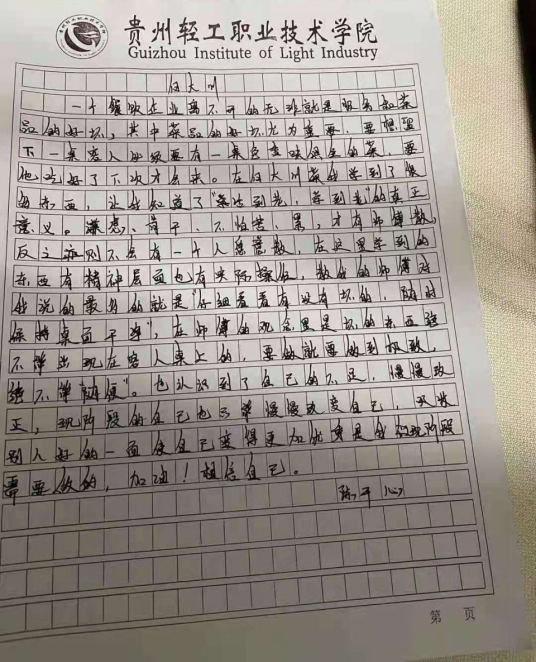 贵州轻工职业技术学院
Guizhou Institute of Light Industry
归大川
一个餐饮企业离不开的无非就是服务和菜
品的好坏,其中菜品的好坏尤为重要,要想留
下一桌客人必须要有一桌色香味俱全的菜,要
他吃好了下次才会来。在归大川菜馆学到了很
多东西,让我知道了“来学到先,等到先”的真正
意义。漂亮、肯干、不怕苦、累,才有师傅教,
反之亦则不会有一个人愿意教,在这里学到的
东西有精神层面也有实际操作,教我的师傅对
我说的最多的就是“仔细看看有没有坏的,随时
保持桌面干净”,在师傅的观念里是坏的东西绝
不能出现在客人桌上的,要做就要做到极致,
绝不能“随便”。也认识到了自己的不足,慢慢改
正,现阶段的自己也只能慢慢改变自己,吸收
别人好的一面使自己变得更加优秀是我们现阶段
需要做的,加油!相信自己。
第 页